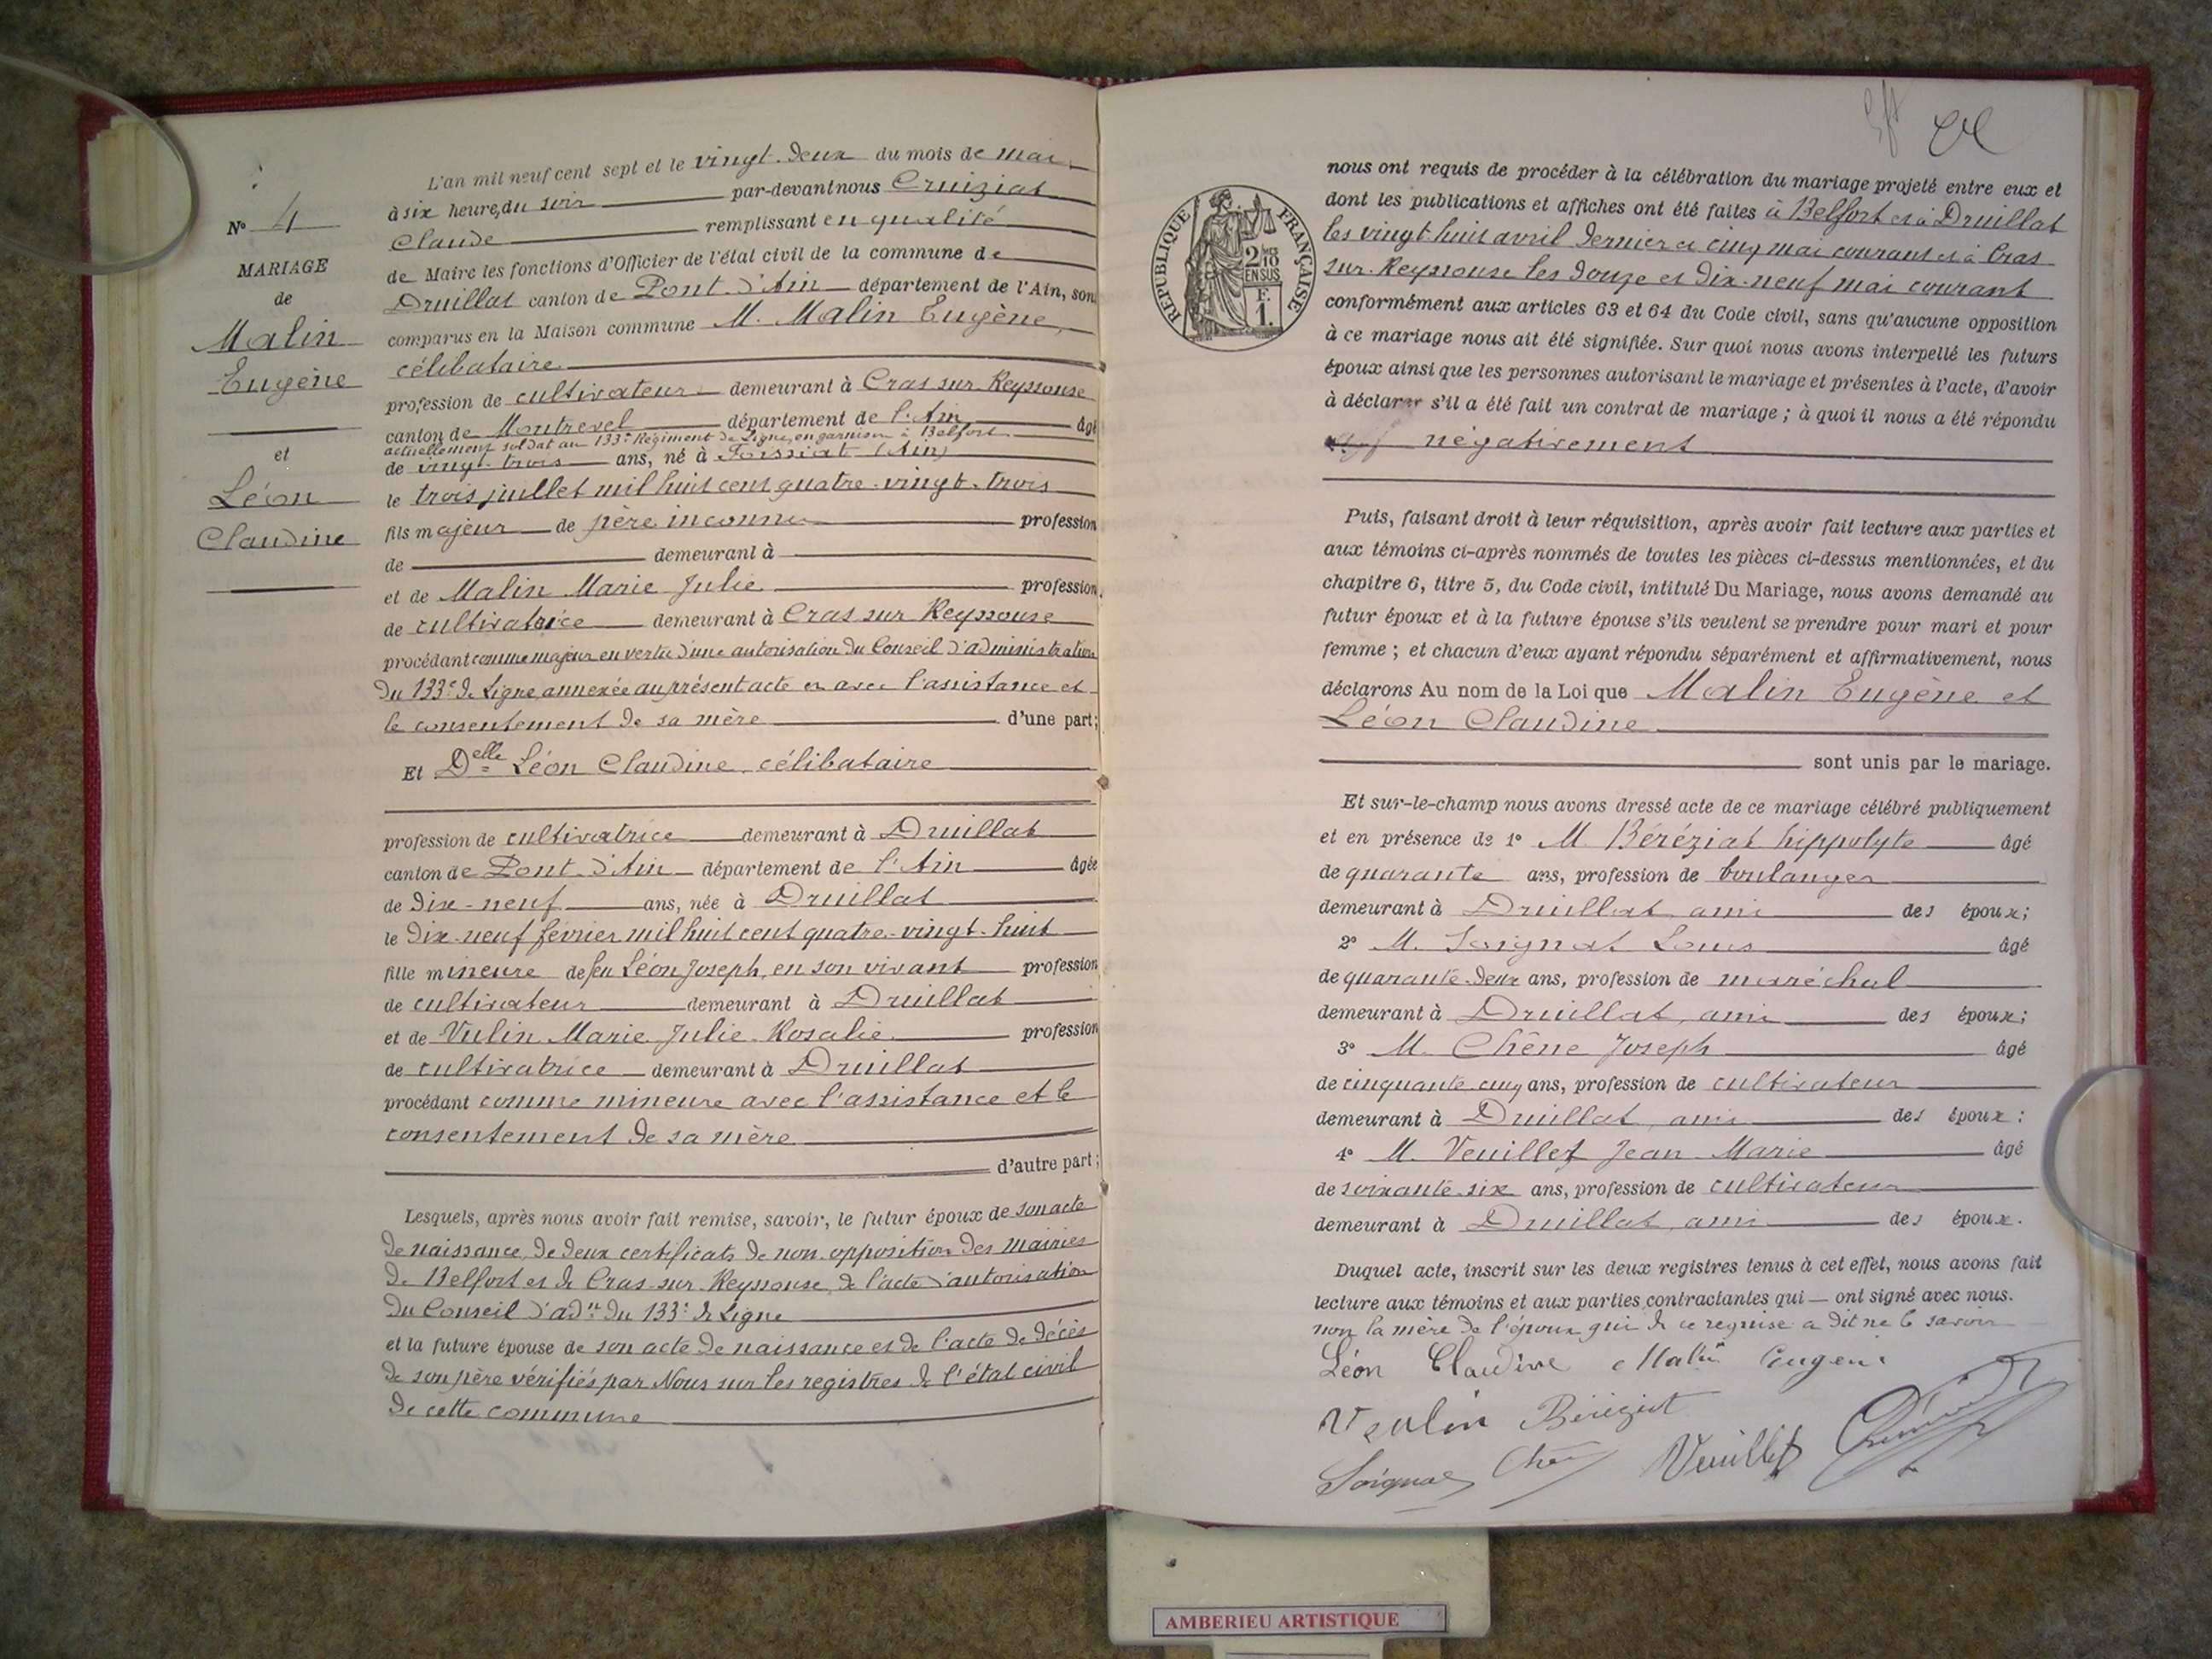 L'an mil neuf cent sept et le vingt-deux du mois de mai
à six heures du soir par-devant nous Cruiziat
Claude remplissant en qualité
de Maire les fonctions d'Officier de l'état civil de la commune de
Druillat canton de Pont-d'Ain département de l'Ain, sont
comparus en la Maison commune M. Malin Eugène,
célibataire
profession de cultivateur demeurant à Cras sur Reyssouse
canton de Montrevel département de l'Ain âgé
actuellement soldat au 133e Régiment de Ligne, en garnison à Belfort
de vingt-trois ans, né à Foissiat (Ain)
le trois juillet mil huit cent quatre-vingt-trois
fils majeur de père inconnu profession
de demeurant à
et de Malin Marie Julie profession
de cultivatrice demeurant à Cras sur Reyssouse
procédant comme majeur en vertu d'une autorisation du Conseil d'administration
du 133e de Ligne annexée au présent acte et avec l'assistance et
le consentement de sa mère d'une part;
Et Delle Léon Claudine, célibataire
profession de cultivatrice demeurant à Druillat
canton de Pont-d'Ain département de l'Ain âgée
de dix-neuf ans, née à Druillat
le dix-neuf février mil huit cent quatre-vingt-huit
fille mineure de feu Léon Joseph, en son vivant profession
de cultivateur demeurant à Druillat
et de Vulin Marie Julie Rosalie profession
de cultivatrice demeurant à Druillat
procédant comme mineure avec l'assistance et le
consentement de sa mère
d'autre part;
Lesquels, après nous avoir fait remise, savoir, le futur époux de son acte
de naissance, de deux certificats de non opposition des mairies
de Belfort et de Cras-sur-Reyssouse, de l'acte d'autorisation
du Conseil d'adon du 133e de Ligne
et la future épouse de son acte de naissance et de l'acte de décès
de son père vérifiés par Nous sur les registres de l'état civil
de cette commune
No 4
MARIAGE
de
Malin
Eugène
et
Léon
Claudine
nous ont requis de procéder à la célébration du mariage projeté entre eux et
dont les publications et affiches ont été faites à Belfort et à Druillat
les vingt huit avril dernier et cinq mai courant et à Cras
sur-Reyssouse les douze et dix-neuf mai courant
conformément aux articles 63 et 64 du Code civil, sans qu'aucune opposition
à ce mariage nous ait été signifiée. Sur quoi nous avons interpellé les futurs
époux ainsi que les personnes autorisant le mariage et présentes à l'acte, d'avoir
à déclarer s'il a été fait un contrat de mariage ; à quoi il nous a été répondu
négativement
Puis, faisant droit à leur réquisition, après avoir fait lecture aux parties et
aux témoins ci-après nommés de toutes les pièces ci-dessus mentionnées, et du
chapitre 6, titre 5, du Code civil, intitulé Du Mariage, nous avons demandé au
futur époux et à la future épouse s'ils veulent se prendre pour mari et pour
femme ; et chacun d'eux ayant répondu séparément et affirmativement, nous
déclarons Au nom de la Loi que Malin Eugène et
Léon Claudine
sont unis par le mariage.
Et sur-le-champ nous avons dressé acte de ce mariage célébré publiquement
et en présence de 1o M. Béréziat hippolyte âgé
de quarante ans, profession de boulanger
demeurant à Druillat, ami des époux;
2o M. Soignat Louis âgé
de quarante-deux ans, profession de maréchal
demeurant à Druillat, ami des époux;
3o M. Chêne Joseph âgé
de cinquante-cinq ans, profession de cultivateur
demeurant à Druillat, ami des époux:
4o M. Veuillet Jean-Marie âgé
de soixante-six ans, profession de cultivateur
demeurant à Druillat, ami des époux.
Duquel acte, inscrit sur les deux registres tenus à cet effet, nous avons fait
lecture aux témoins et aux parties contractantes qui ont signé avec nous.
non la mère de l'époux qui de ce requise a dit ne le savoir
Léon Claudine Malin Eugène
Veulin Béréziat
Soignat Chêne Veuillet
RÉPUBLIQUE FRANÇAISE
2/10
EN SUS
F.
1.
AMBERIEU ARTISTIQUE